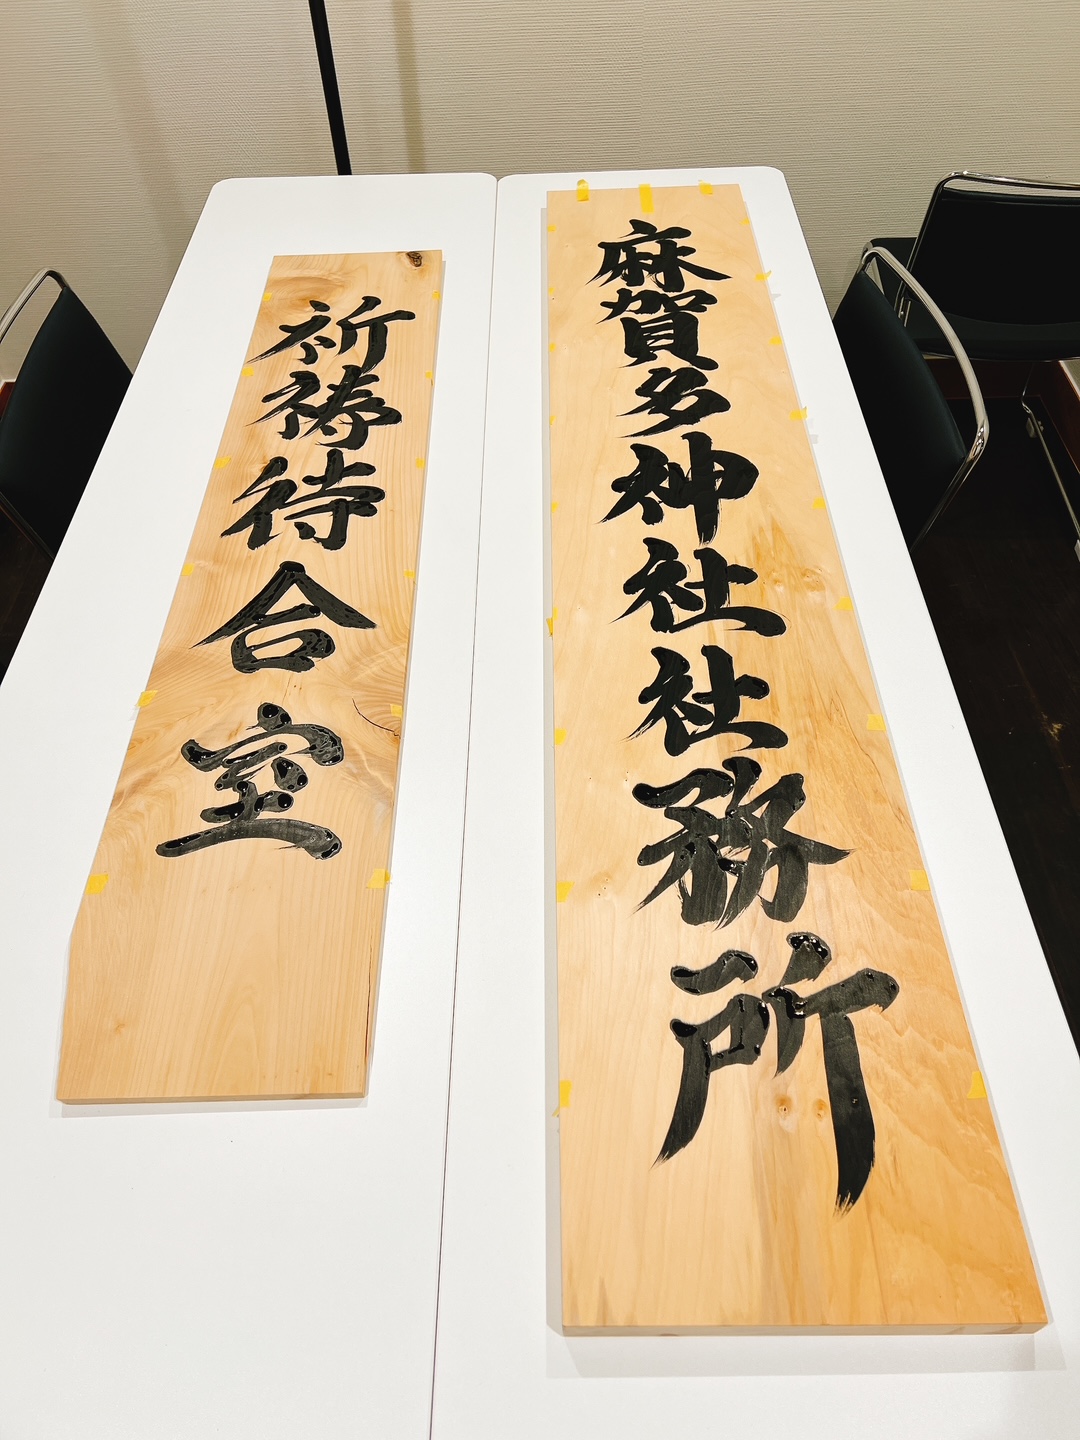 麻賀多神社社務所
祈祷待合室